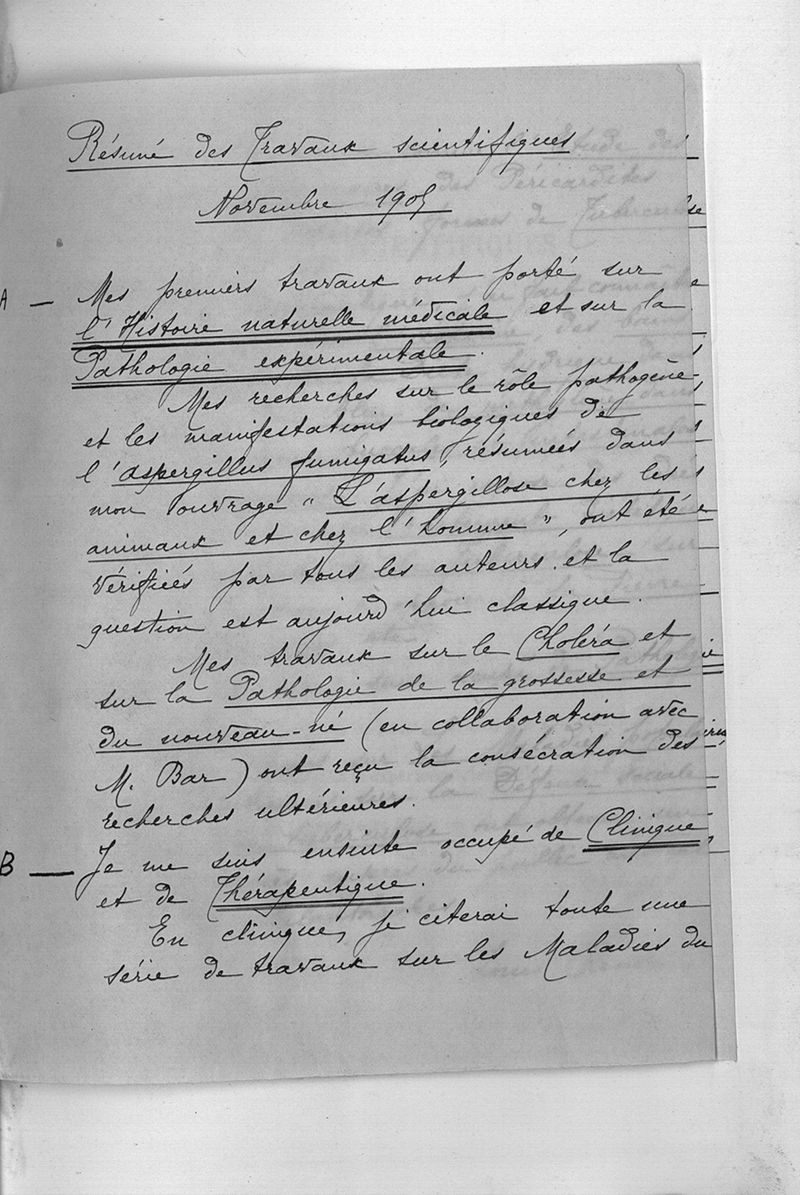 Résumé des Travaux scientifiques
Novembre 1905
A — Mes premiers travaux ont porté sur
l'Histoire naturelle médicale et sur la
Pathologie expérimentale.
Mes recherches sur le rôle pathogène
et les manifestations biologiques de
l'aspergillus fumigatus, résumées dans
mon ouvrage "L'aspergillose chez les
animaux et chez l'homme", ont été
vérifiées par tous les auteurs et la
question est aujourd'hui classique.
Mes travaux sur le Choléra et
sur la Pathologie de la grossesse et
du nouveau-né (en collaboration avec
M. Bar) ont reçu la consécration des
recherches ultérieures.
B — Je me suis ensuite occupé de Clinique
et de Thérapeutique.
En clinique, je citerai toute une
série de travaux sur les Maladies du